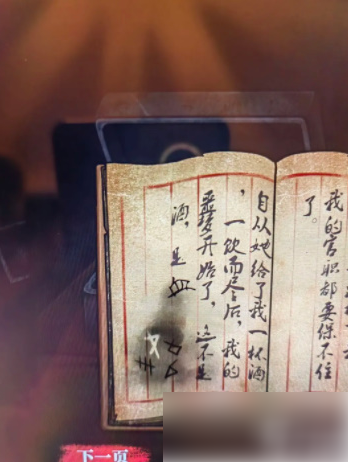 我的官职都要保不住
了。
自从她给了我一杯酒
，一饮而尽后，我的
噩梦开始了，这不是
酒，是
下一页